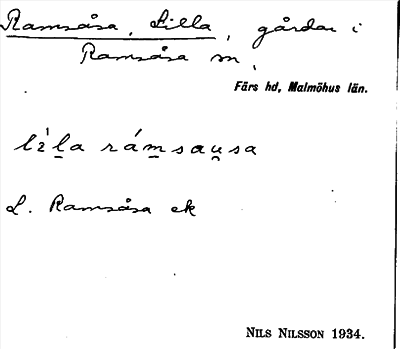 Ramsåsa, Lilla, gårdar i
Ramsåsa sn,
Färs hd, Malmöhus län.
lìl̲a rám̲sau̯sa
L. Ramsåsa ek
NILS NILSSON 1934.